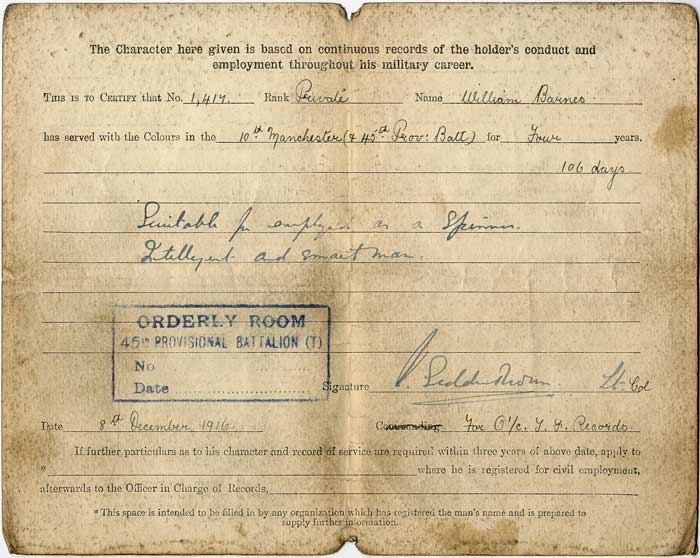 The Character here given is based on continuous records of the holder's conduct and
employment throughout his military career.
This is to Certify that No. 1,417. Rank Private Name William Barnes.
has served with the Colours in the 10th Manchester (& 45th Prov: Batt) for Four years.
106 days
Suitable for employ as a Spinner.
Intelligent and smart man.
ORDERLY ROOM
45TH PROVISIONAL BATTALION (T)
No
Date
Signature Lt. Col
Date 8th December 1916. Commanding For O/c. T. F. Records.
If further particulars as to his character and record of service are required within three years of above date, apply to
* where he is registered for civil employment,
afterwards to the Officer in Charge of Records,
* This space is intended to be filled in by any organization which has registered the man's name and is prepared to
supply further information.